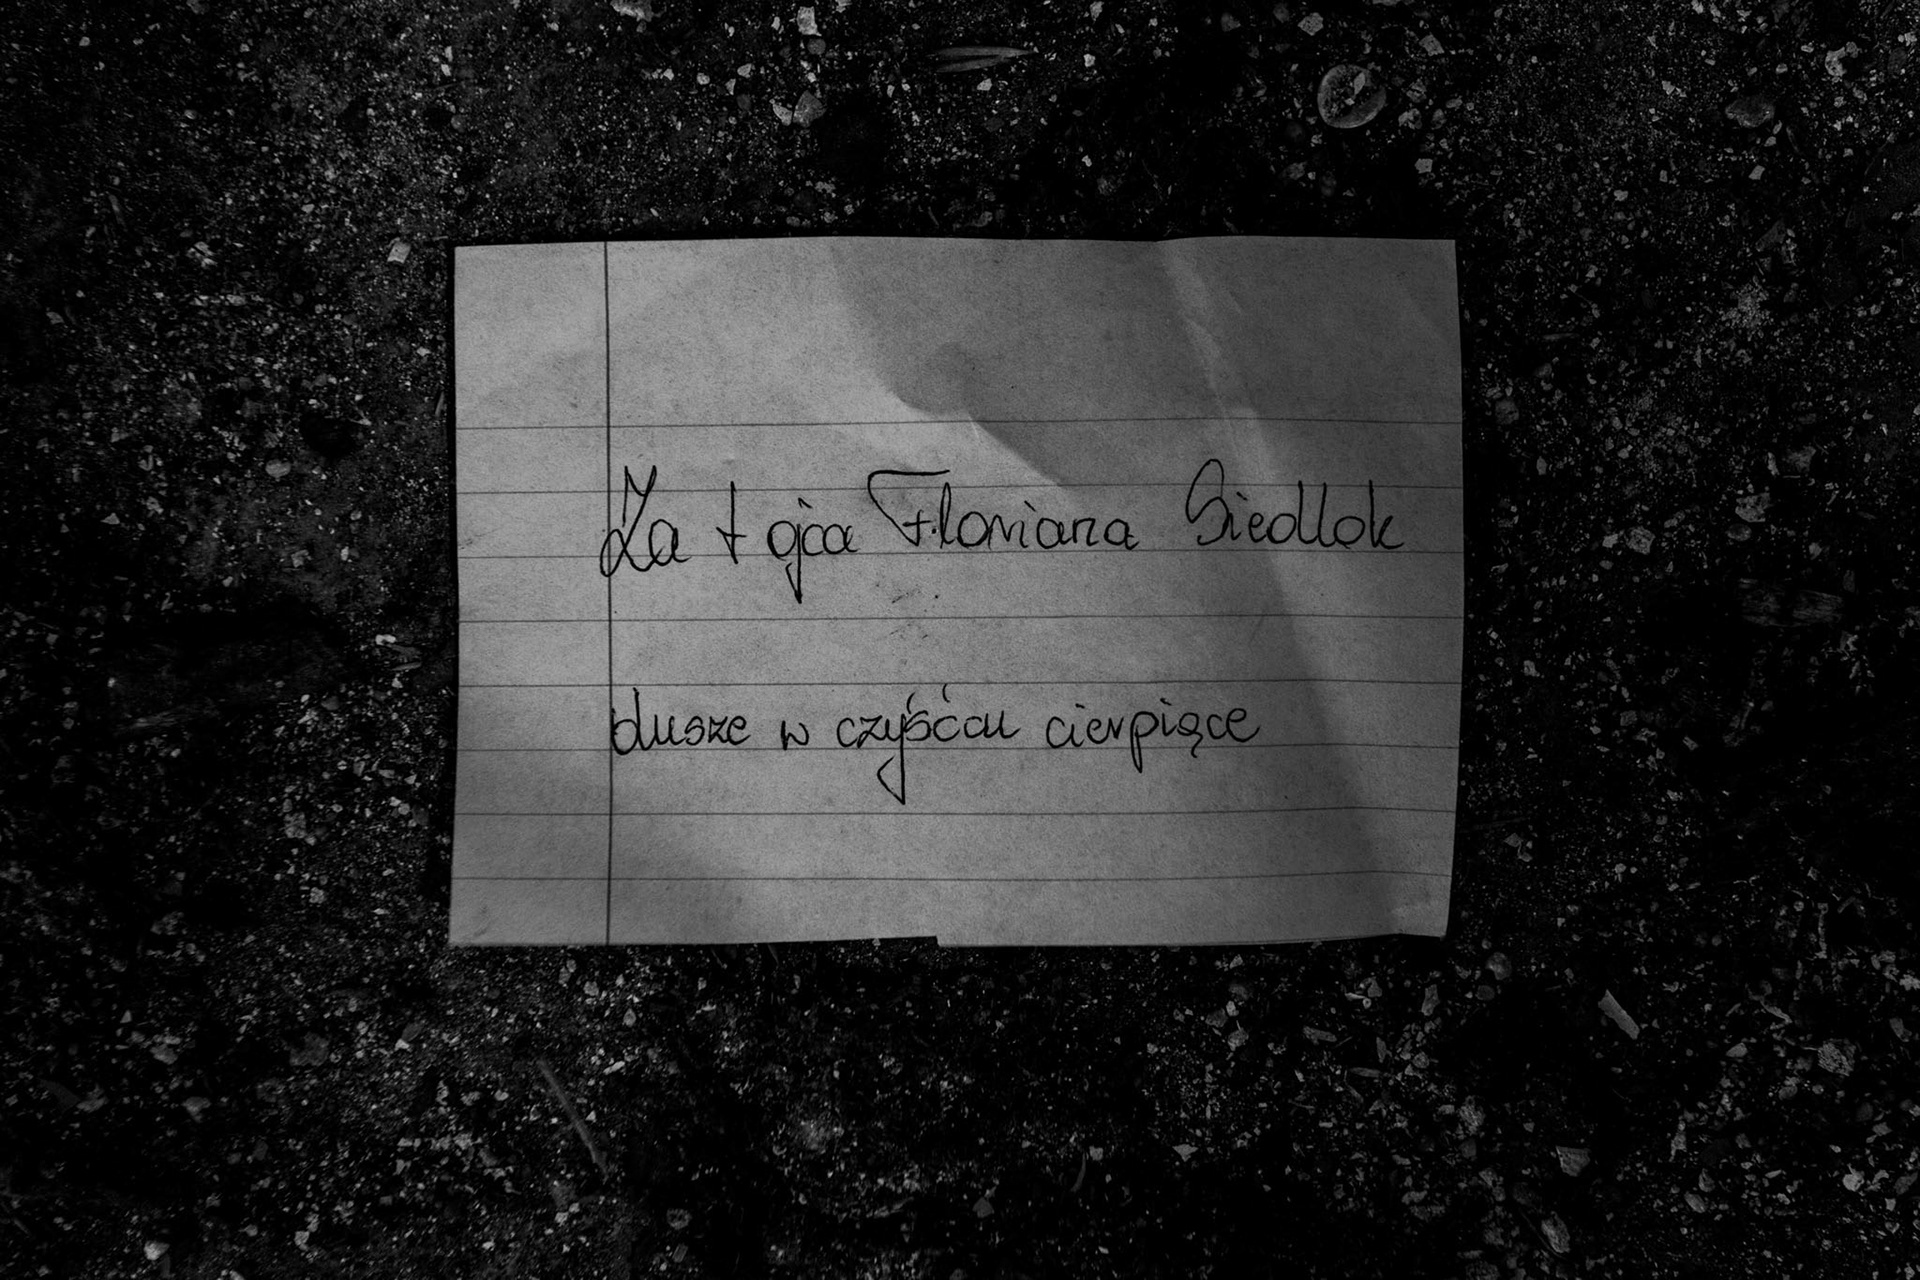 Za † ojca Floriana Siedlok
dusze w czyśćcu cierpiące